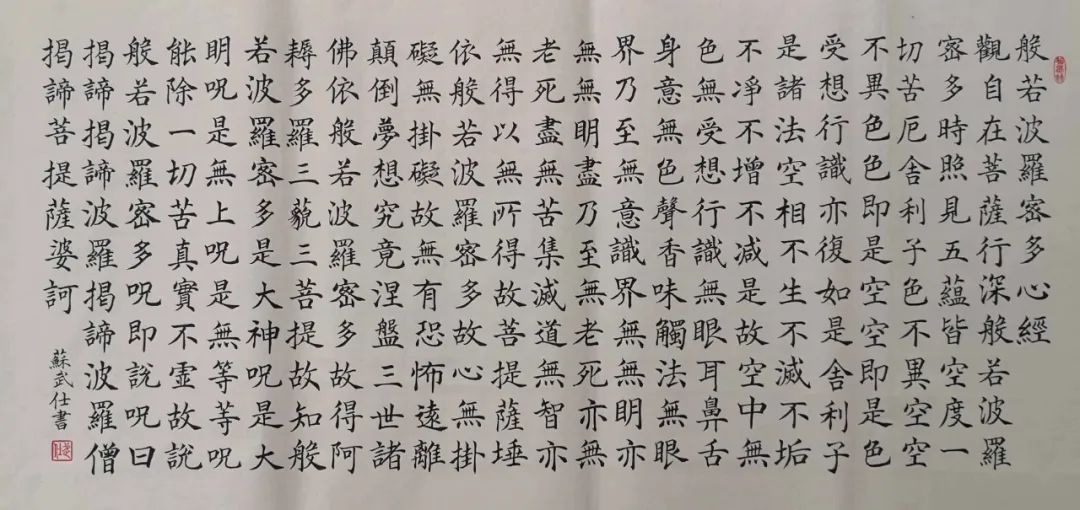 般若波羅密多心經
觀自在菩薩行深般若波羅
密多時照見五蘊皆空度一
切苦厄舍利子色不異空空
不異色色即是空空即是色
受想行識亦復如是舍利子
是諸法空相不生不滅不垢
不凈不增不减是故空中無
色無受想行識無眼耳鼻舌
身意無色聲香味觸法無眼
界乃至無意識界無無明亦
無無明盡乃至無老死亦無
老死盡無苦集滅道無智亦
無得以無所得故菩提薩埵
依般若波羅密多故心無掛
礙無掛礙故無有恐怖遠離
顛倒夢想究竟涅盤三世諸
佛依般若波羅密多故得阿
耨多羅三藐三菩提故知般
若波羅密多是大神呪是大
明呪是無上呪是無等等呪
能除一切苦真實不虛故說
般若波羅密多呪即說呪曰
揭諦揭諦波羅揭諦波羅僧
揭諦菩提薩婆訶
蘇武仕書